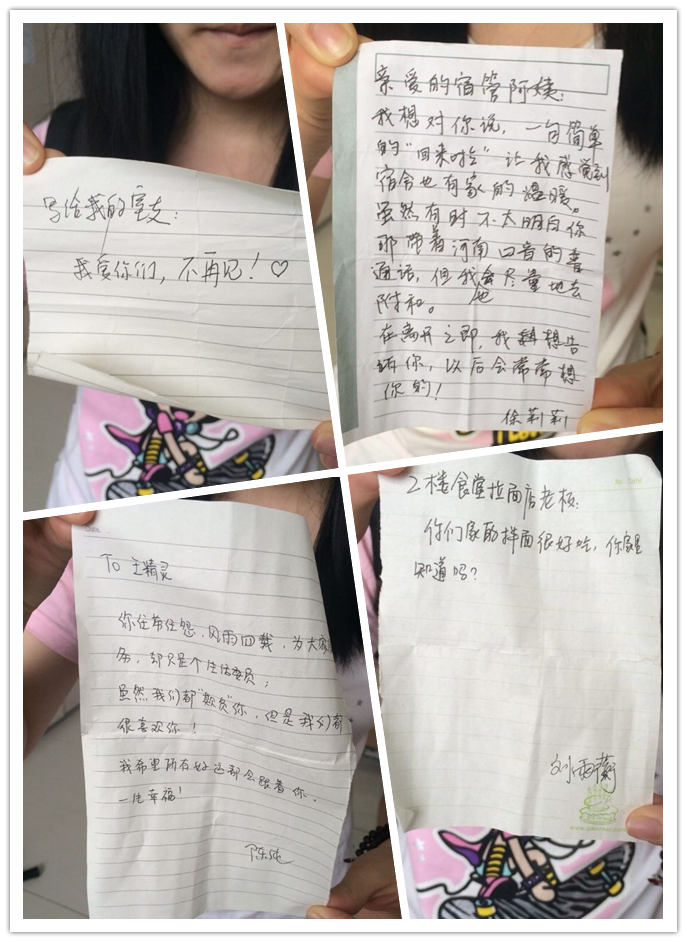 写给我的室友:
我爱你们,不再见!♡
亲爱的宿管阿姨:
我想对你说,一句简单
的“回来啦”让我感觉到
宿舍也有家的温暖。
虽然有时不太明白你
那带着河南口音的普
通话,但我也会尽量地去
附和。
在离开之即,我想告
诉你,以后会常常想
你的!
徐莉莉
To 王精灵
你任劳任怨、风雨四载,为大家
务,却只是个生活委员;
虽然我们都“欺负”你,但是我们都
很喜欢你!
我希望所有好运都会跟着你,
一生幸福!
陈纯
2楼食堂拉面店老板:
你们家的拌面很好吃,你家里
知道吗?
刘雨蘅